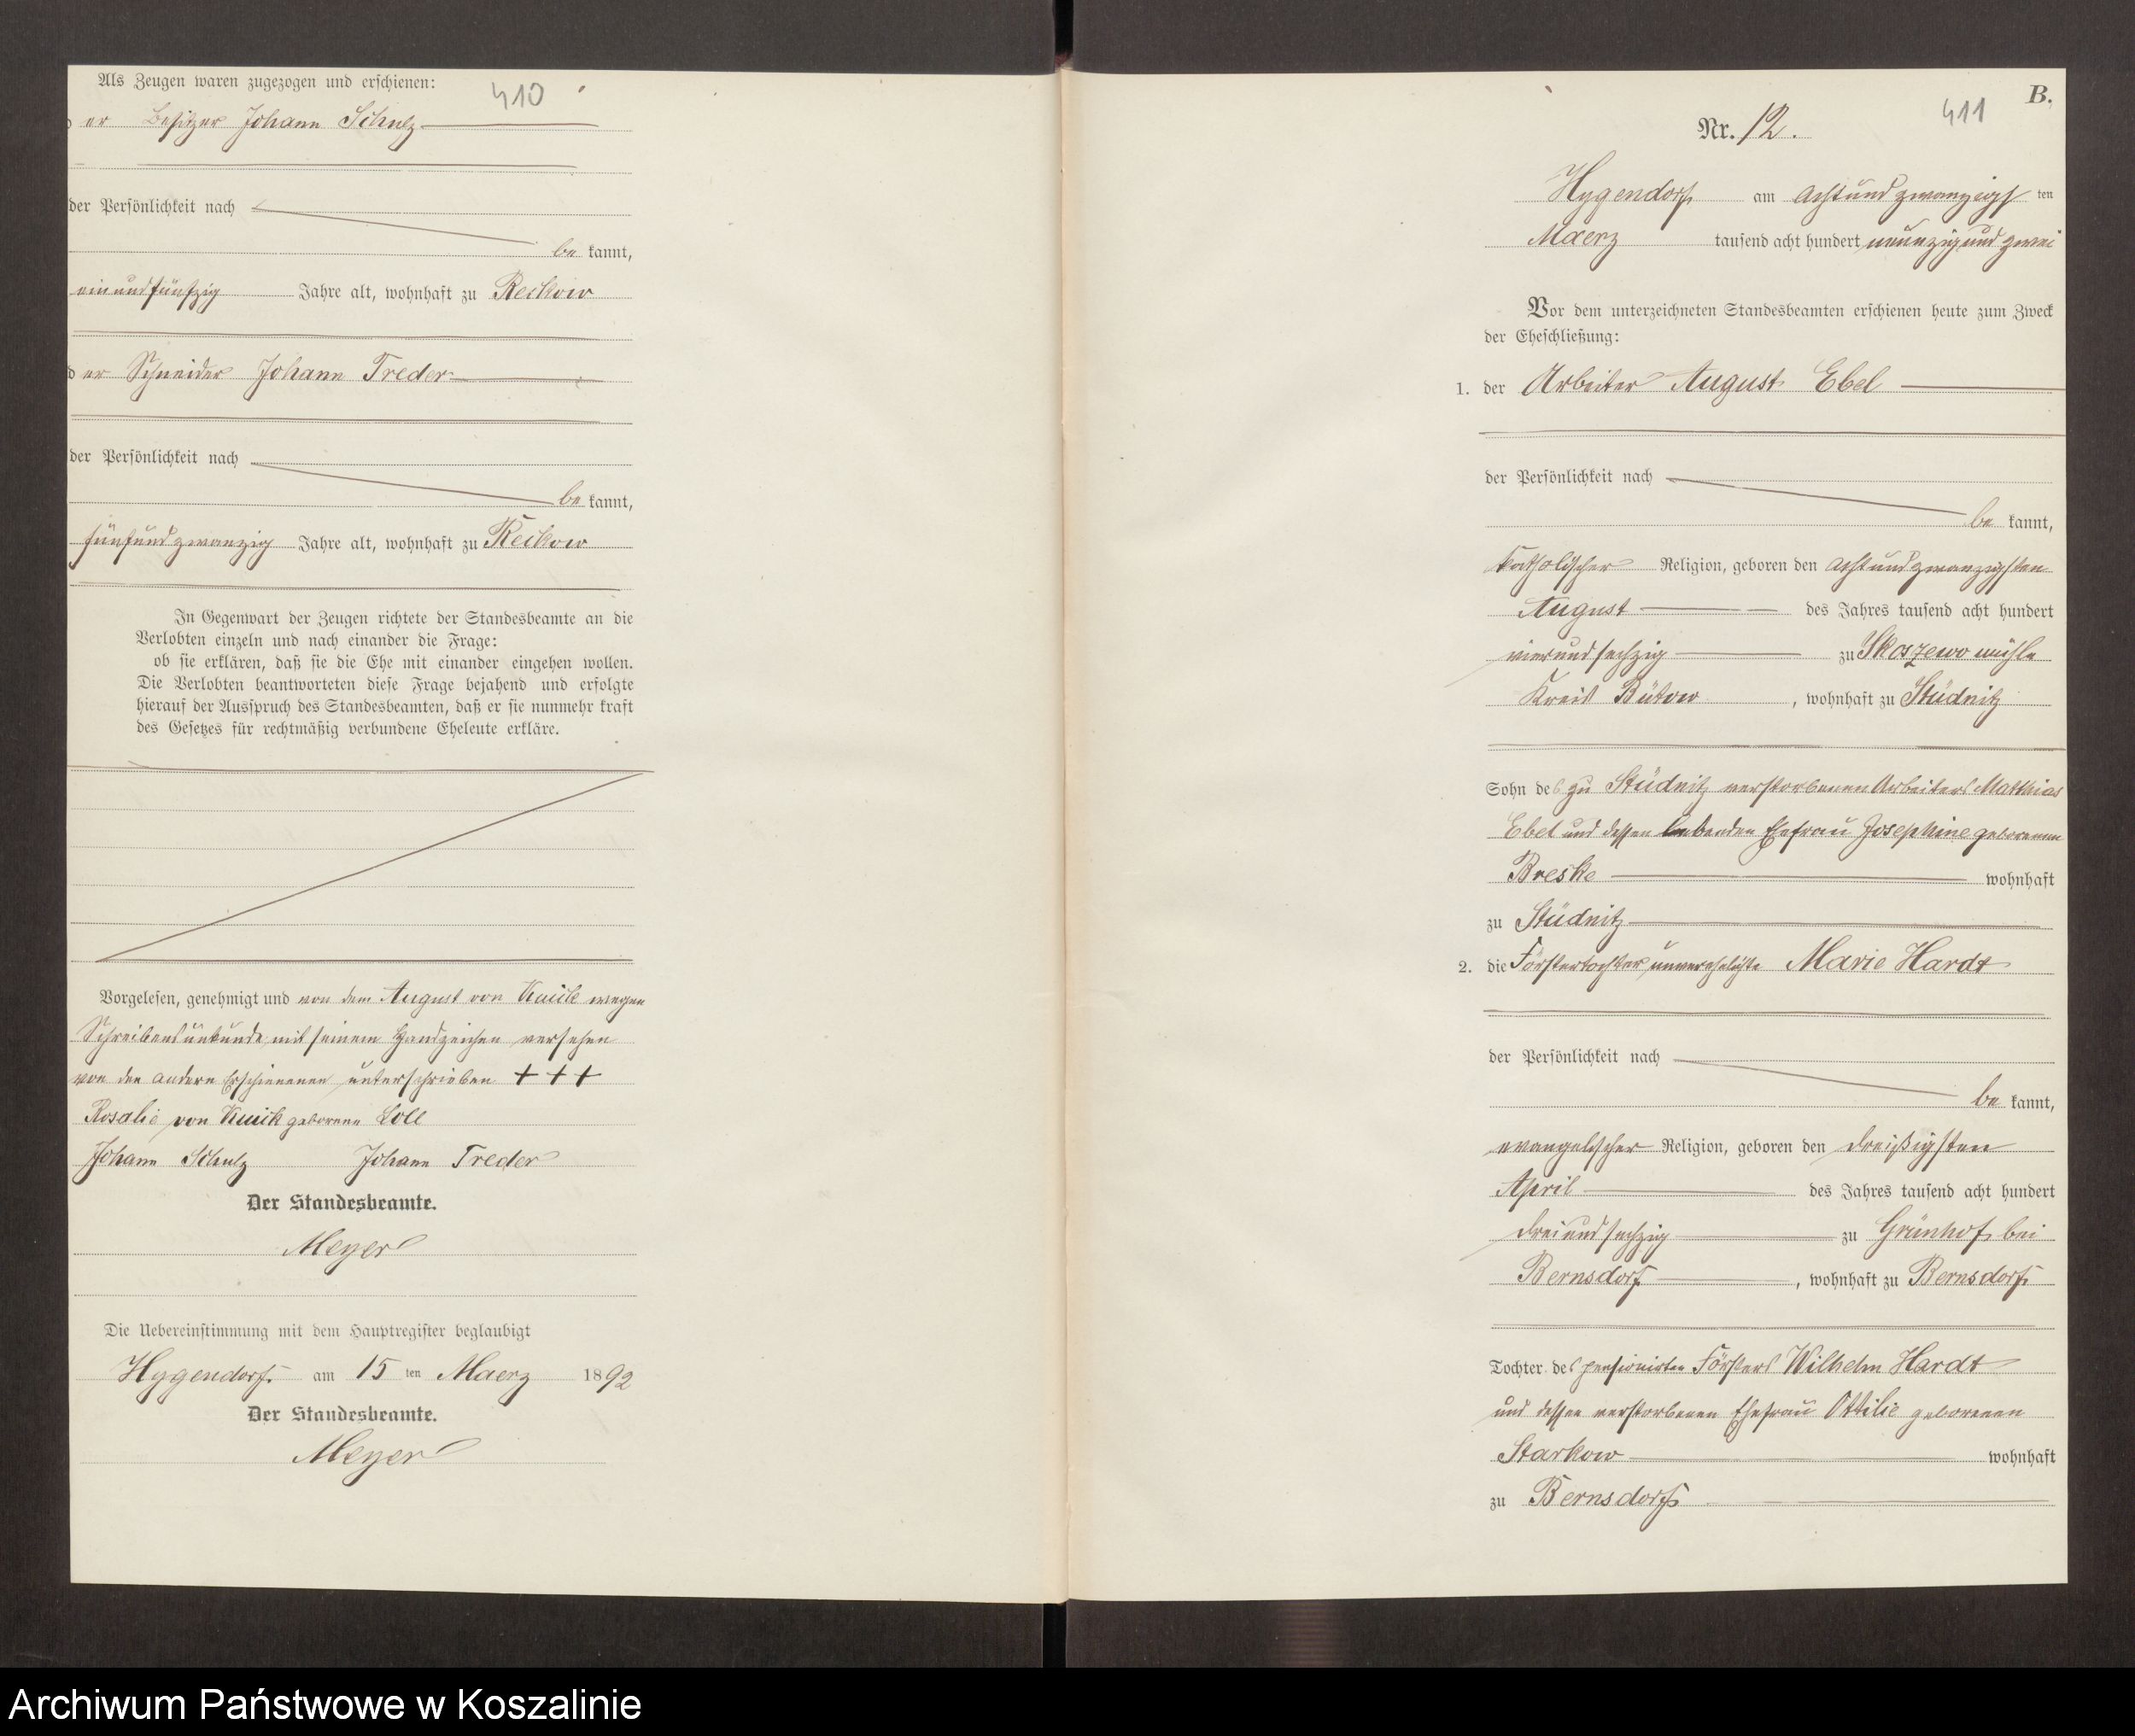 Als Zeugen waren zugezogen und erschienen:
410
er Besitzer Johann Schulz
der Persönlichkeit nach
be kannt,
einundfünfzig Jahre alt, wohnhaft zu Reckow
er Schneider Johann Treder
der Persönlichkeit nach
be kannt,
fünfundzwanzig Jahre alt, wohnhaft zu Reckow
In Gegenwart der Zeugen richtete der Standesbeamte an die
Verlobten einzeln und nach einander die Frage:
ob sie erklären, daß sie die Ehe mit einander eingehen wollen.
Die Verlobten beantworteten diese Frage bejahend und erfolgte
hierauf der Ausspruch des Standesbeamten, daß er sie nunmehr kraft
des Gesetzes für rechtmäßig verbundene Eheleute erkläre.
Vorgelesen, genehmigt und von dem August von Kuick wegen
Schreibensunkunde mit seinem Handzeichen versehen
von den andern Erschienenen unterschrieben + + +
Rosalie von Kuick geborene Loll
Johann Schulz Johann Treder
Der Standesbeamte.
Meyer
Die Uebereinstimmung mit dem Hauptregister beglaubigt
Hygendorf am 15 ten Maerz 1892
Der Standesbeamte.
Meyer
B.
411
Nr. 12.
Hygendorf am achtundzwanzigs ten
Maerz tausend acht hundert neunzig und zwei
Vor dem unterzeichneten Standesbeamten erschienen heute zum Zweck
der Eheschließung:
1. der Arbeiter August Ebel
der Persönlichkeit nach
be kannt,
katholischer Religion, geboren den achtundzwanzigsten
August des Jahres tausend acht hundert
vierundsechzig zu Skoszewo mühle
Kreis Bütow, wohnhaft zu Stüdnitz
Sohn des zu Stüdnitz verstorbenen Arbeiters Matthias
Ebel und dessen lebenden Ehefrau Josephine geborenen
Breske wohnhaft
zu Stüdnitz
2. die Förstertochter unverehelichte Marie Hardt
der Persönlichkeit nach
be kannt,
evangelischer Religion, geboren den dreißigsten
April des Jahres tausend acht hundert
dreiundsechzig zu Grünhof bei
Bernsdorf, wohnhaft zu Bernsdorf
Tochter des pensionirten Försters Wilhelm Hardt
und dessen verstorbenen Ehefrau Ottilie geborenen
Starkow wohnhaft
zu Bernsdorf
Archiwum Państwowe w Koszalinie